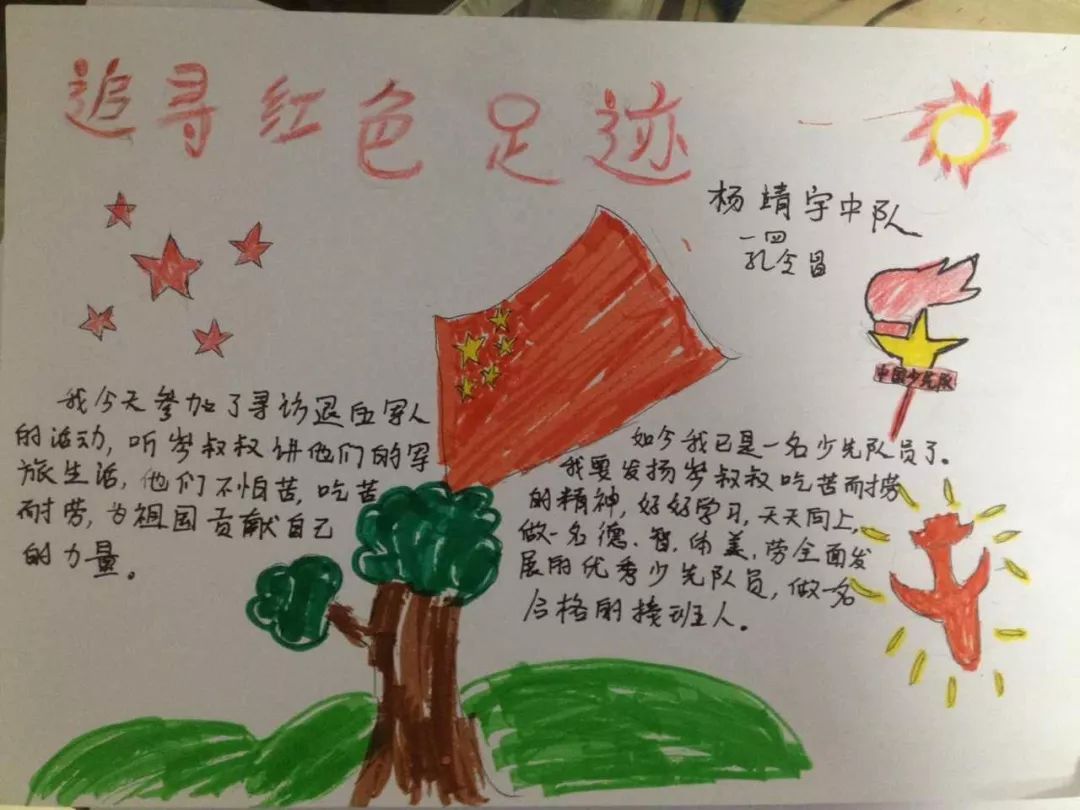 追寻红色足迹
杨靖宇中队
一四
孔令昌
中国少先队
我今天参加了寻访退伍军人
的活动，听岑叔叔讲他们的军
旅生活，他们不怕苦，吃苦
耐劳，为祖国贡献自己
的力量。
如今我已是一名少先队员了。
我要发扬岑叔叔吃苦而耐劳
的精神，好好学习，天天向上，
做一名德、智、体、美、劳全面发
展的优秀少先队员，做一名
合格的接班人。